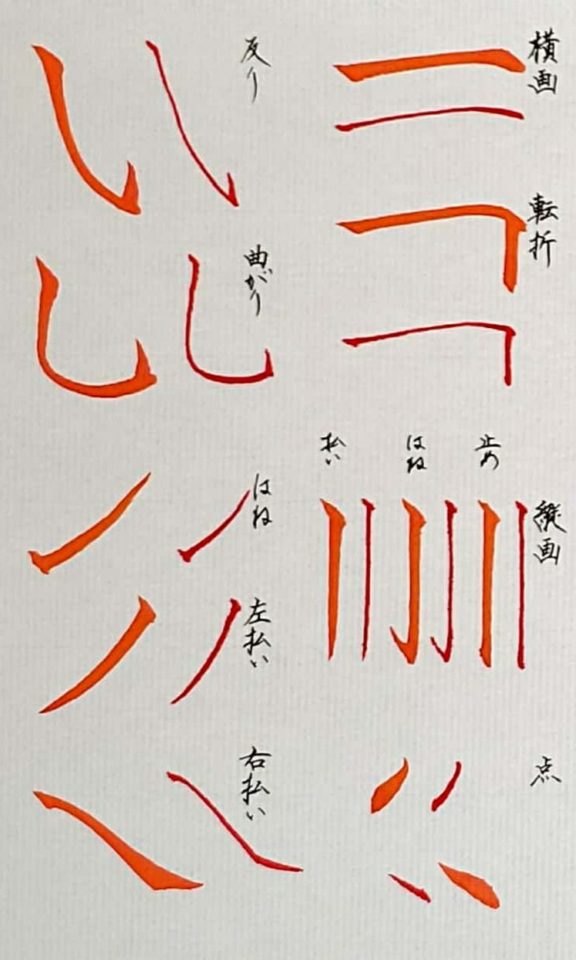 横画
転折
縦画
止め
はね
払い
点
反り
曲がり
はね
左払い
右払い